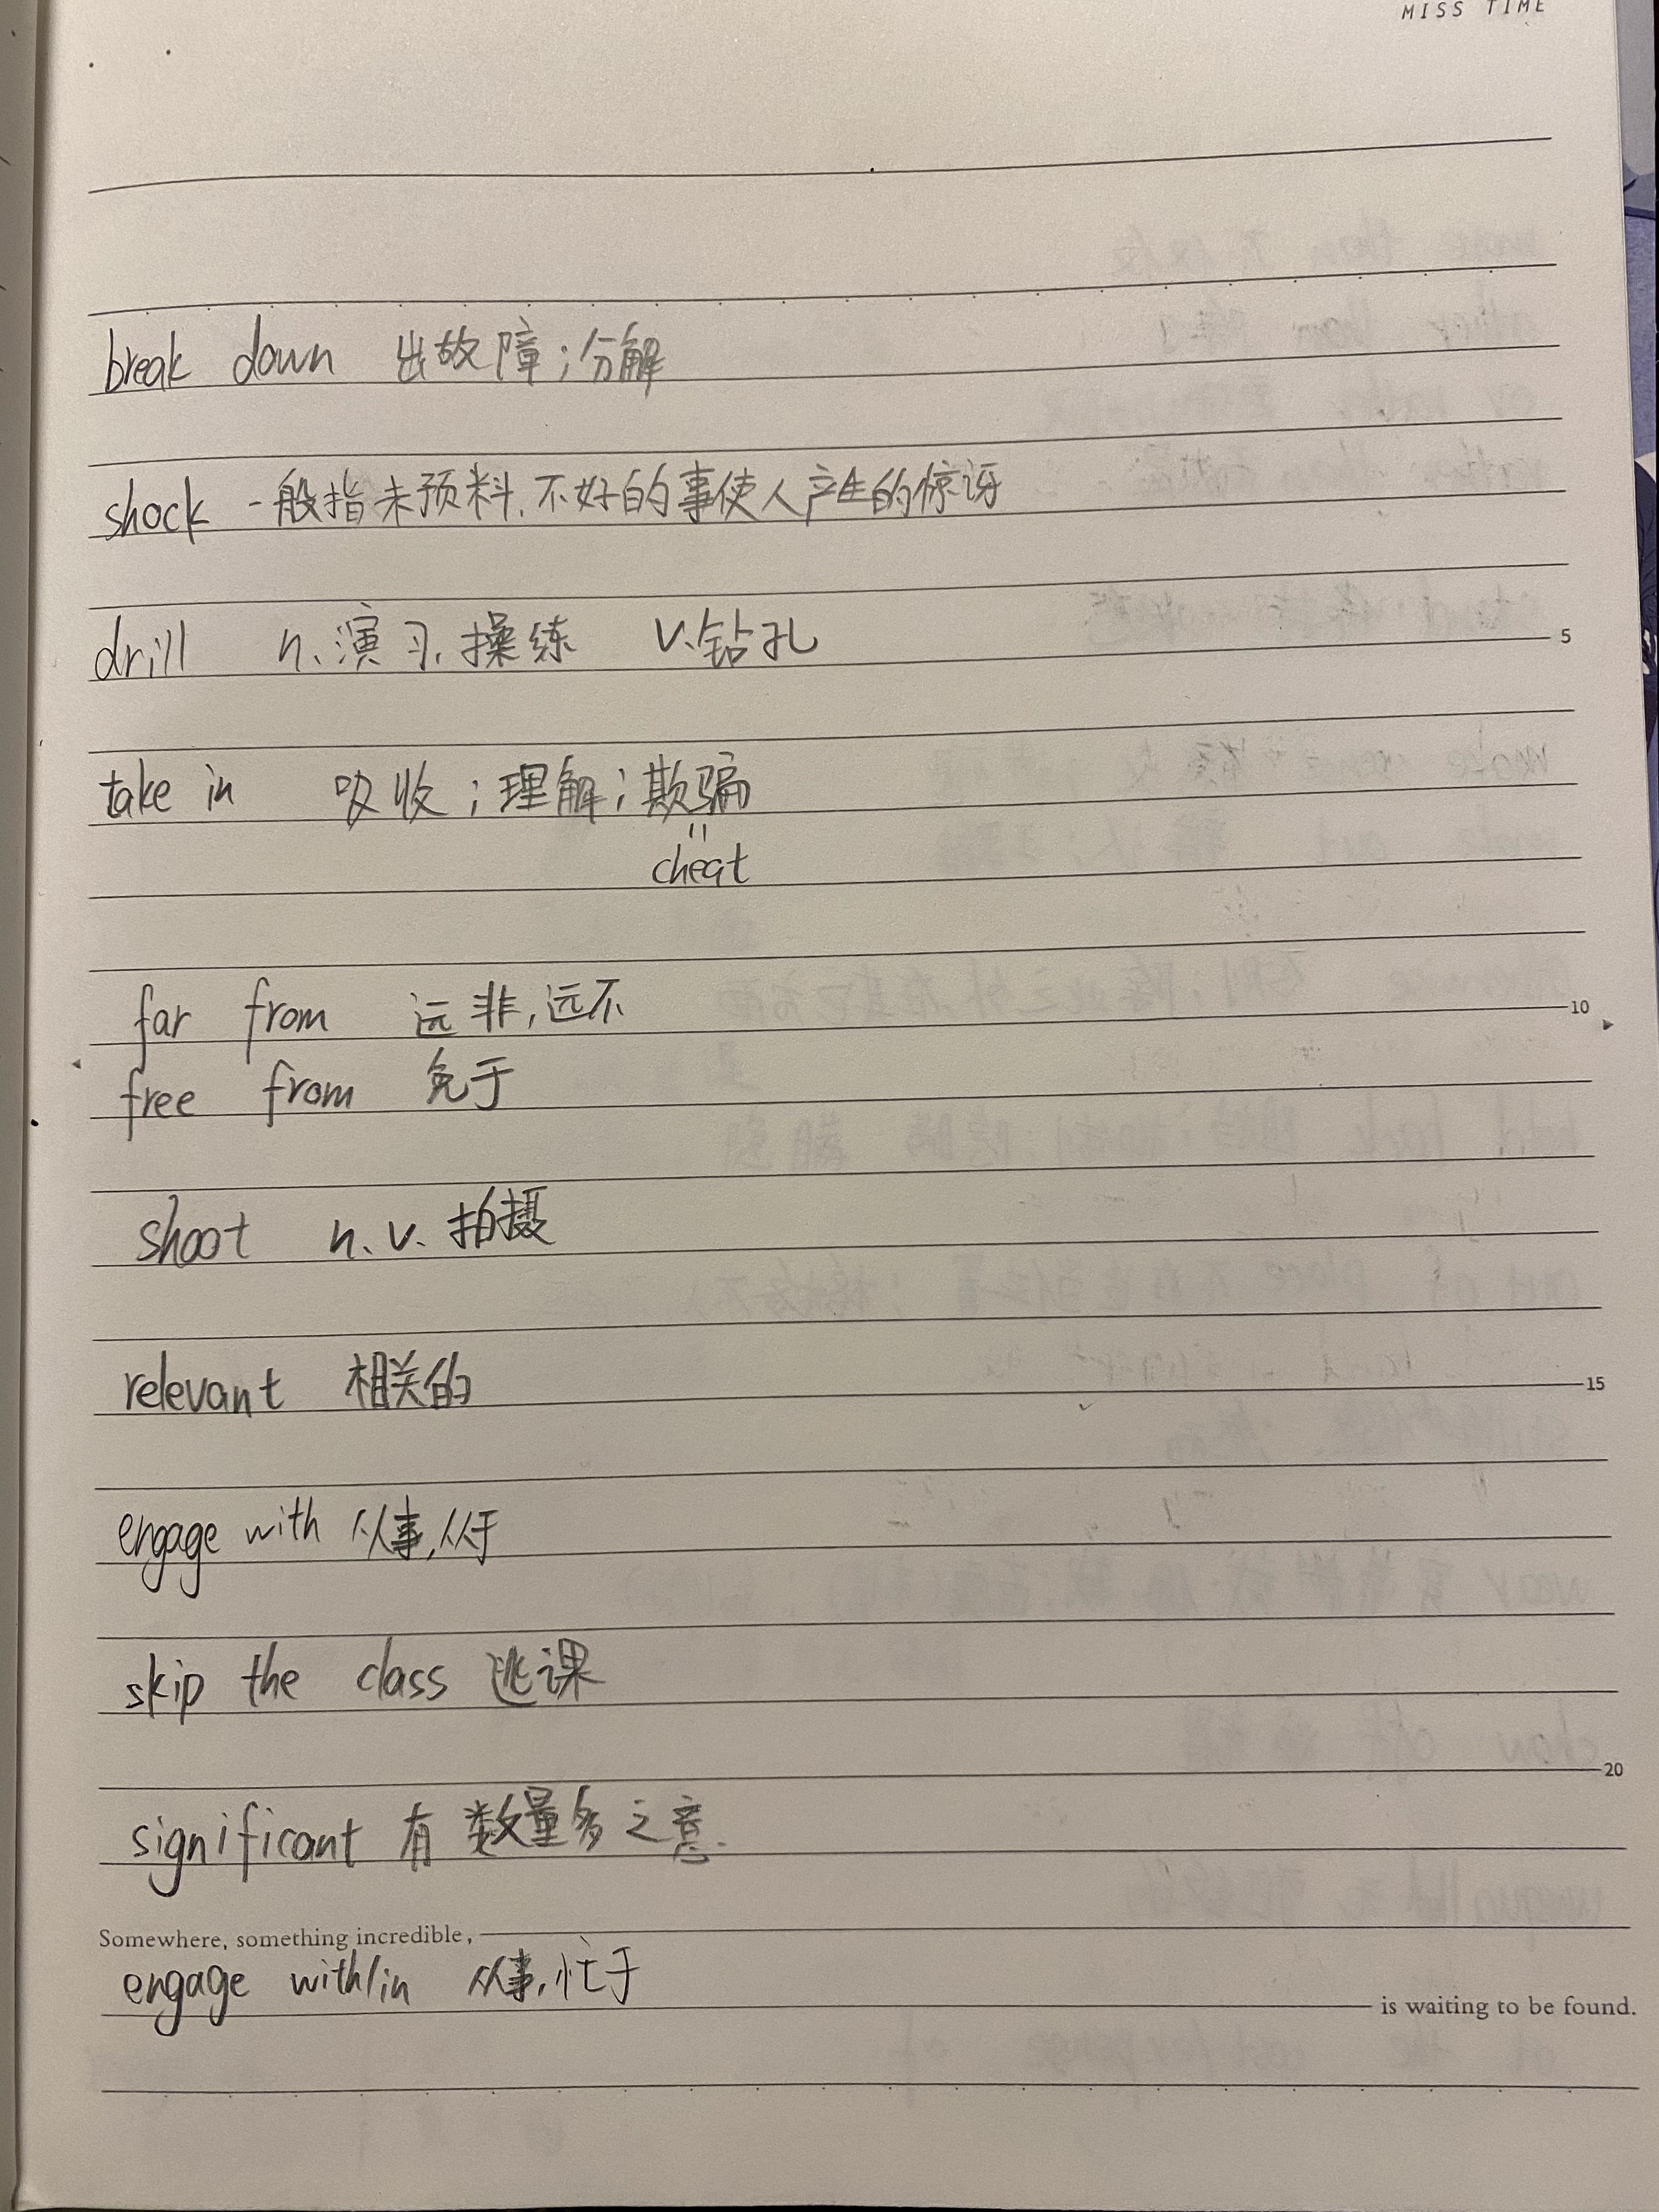 MISS TIME
break down 出故障；分解
shock 一般指未预料,不好的事使人产生的惊讶
drill n.演习,操练 v.钻孔
5
take in 吸收；理解；欺骗
cheat
far from 远非,远不
10
free from 免于
shoot n.v.拍摄
relevant 相关的
15
engage with 从事,从于
skip the class 逃课
20
significant 有 数量多 之意.
Somewhere, something incredible,
engage with/in 从事,忙于
is waiting to be found.